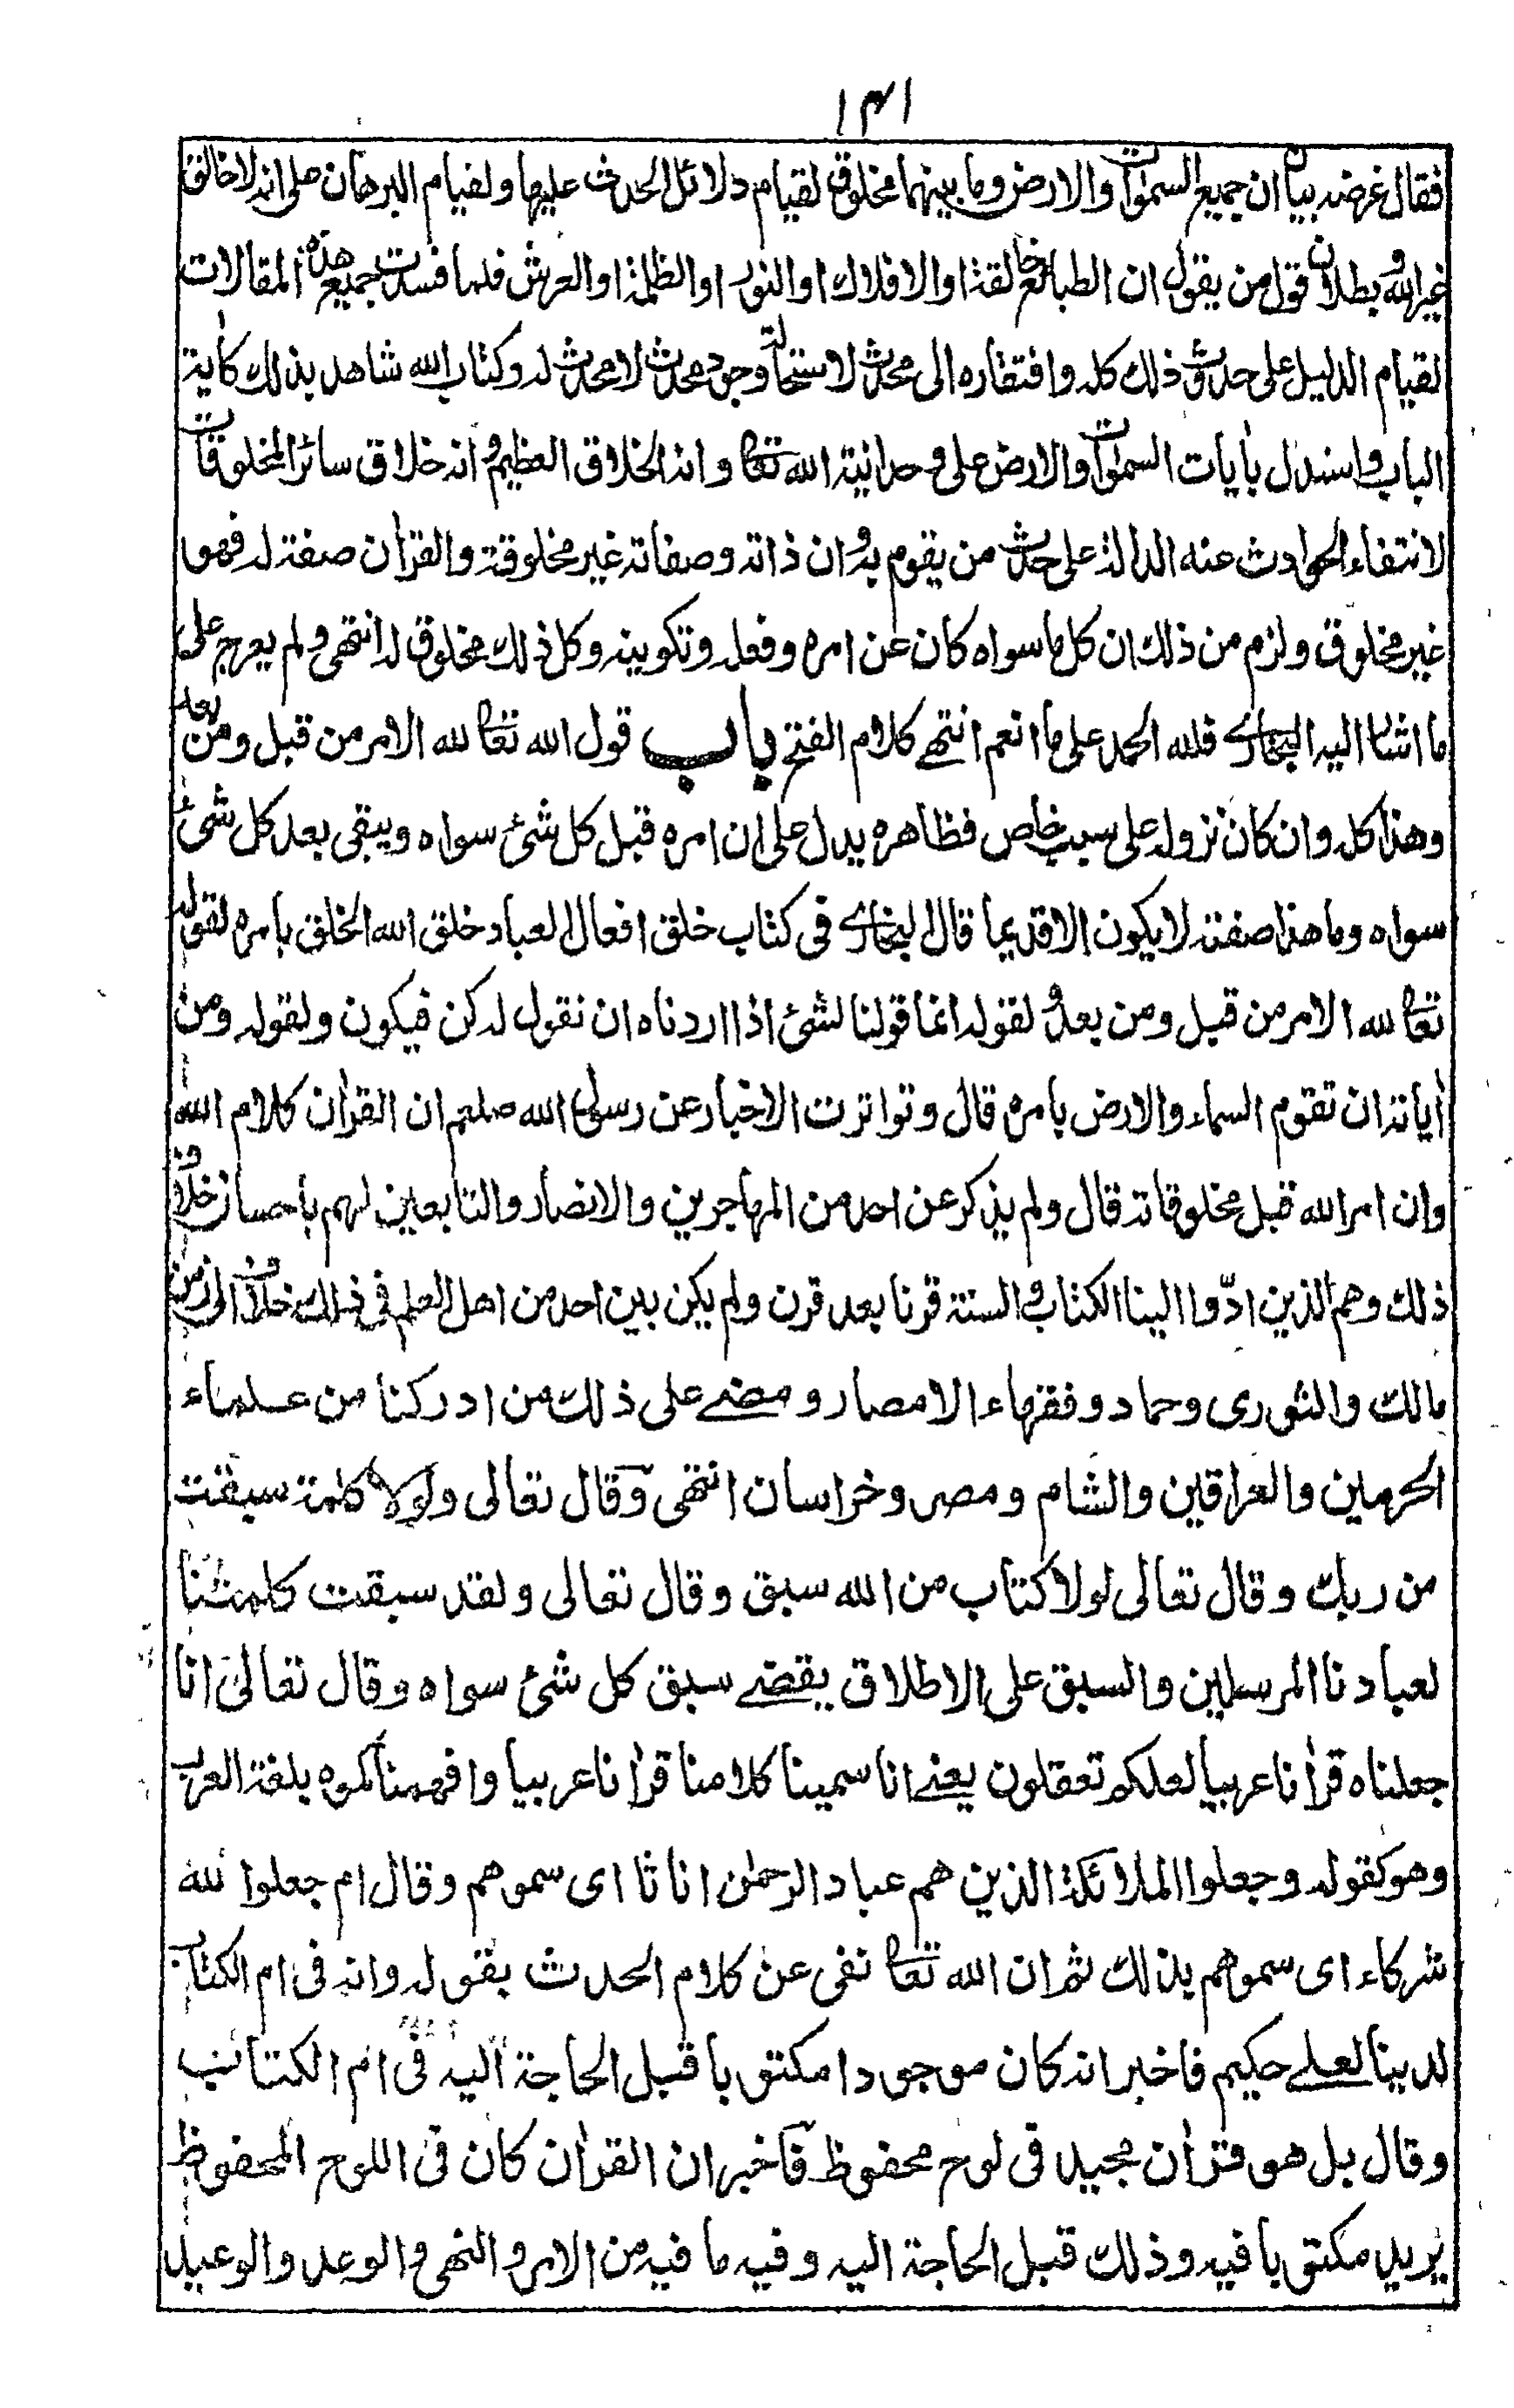 ۱۴۱
فقال غرضه بيان ان جميع السموات والارض وما بينهما مخلوق لقيام دلائل الحدث عليها ولقيام البرهان على انه لا خالق
غير الله وبطلان قول من يقول ان الطبائع خالقة او الافلاك او النور او الظلمة او العرش فلما فسدت جميع هذه المقالات
لقيام الدليل على حدث ذلك كله وافتقاره الى محدث لاستحالة وجود محدث لا محدث له وكتاب الله شاهد بذلك كاٰية
الباب واستدل باٰيات السموات والارض على وحدانية الله تعا وانه الخلاق العظيم وانه خلاق سائر المخلوقات
لانتفاء الحوادث عنه الدالة على حدث من يقوم به وان ذاته وصفاته غير مخلوقة والقراٰن صفة له فهو
غير مخلوق ولزم من ذلك ان كل ما سواه كان عن امره وفعله وتكوينه وكل ذلك مخلوق له انتهى ولم يعرج على
ما اشار اليه البخارى فلله الحمد على ما انعم انتهى كلام الفتح باب قول الله تعا لله الامر من قبل ومن بعد
وهذا كله وان كان نزوله على سبب خاص فظاهره يدل على ان امره قبل كل شئ سواه ويبقى بعد كل شئ
سواه وما هذا صفته لا يكون الا قديما قال البخارى فى كتاب خلق افعال العباد خلق الله الخلق بامره لقوله
تعا لله الامر من قبل ومن بعد ولقوله انما قولنا لشئ اذا اردناه ان نقول له كن فيكون ولقوله ومن
اٰياته ان تقوم السماء والارض بامره قال وتواترت الاخبار عن رسول الله صلعم ان القراٰن كلام الله
وان امر الله قبل مخلوقاته قال ولم يذكر عن احد من المهاجرين والانصار والتابعين لهم باحسان خلاف
ذلك وهم الذين ادّوا الينا الكتاب والسنة قرنا بعد قرن ولم يكن بين احد من اهل العلم فى ذلك خلاف الى زمن
مالك والثورى وحماد وفقهاء الامصار ومضى على ذلك من ادركنا من علماء
الحرمين والعراقين والشام ومصر وخراسان انتهى وقال تعالى ولولا كلمة سبقت
من ربك وقال تعالى لولا كتاب من الله سبق وقال تعالى ولقد سبقت كلمتنا
لعبادنا المرسلين والسبق على الاطلاق يقضى سبق كل شئ سواه وقال تعالى انا
جعلناه قراٰنا عربيا لعلكم تعقلون يعنى انا سمينا كلامنا قراٰنا عربيا وافهمناكموه بلغة العرب
وهو كقوله وجعلوا الملائكة الذين هم عباد الرحمٰن اناثا اى سموهم وقال ام جعلوا لله
شركاء اى سموهم بذلك ثم ان الله تعا نفى عن كلام الحدث بقوله وانه فى ام الكتاب
لدينا لعلى حكيم فاخبر انه كان موجودا مكتوبا قبل الحاجة اليه فى ام الكتاب
وقال بل هو قراٰن مجيد فى لوح محفوظ فاخبر ان القراٰن كان فى اللوح المحفوظ
يريد مكتوبا فيه وذلك قبل الحاجة اليه وفيه ما فيه من الامر والنهى والوعد والوعيد